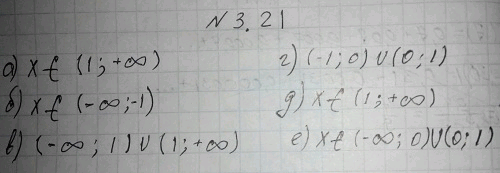 №3.21
а) x ∈ (1; +∞)
б) x ∈ (-∞; -1)
в) (-∞; 1) ∪ (1; +∞)
г) (-1; 0) ∪ (0; 1)
д) x ∈ (1; +∞)
е) x ∈ (-∞; 0) ∪ (0; 1)